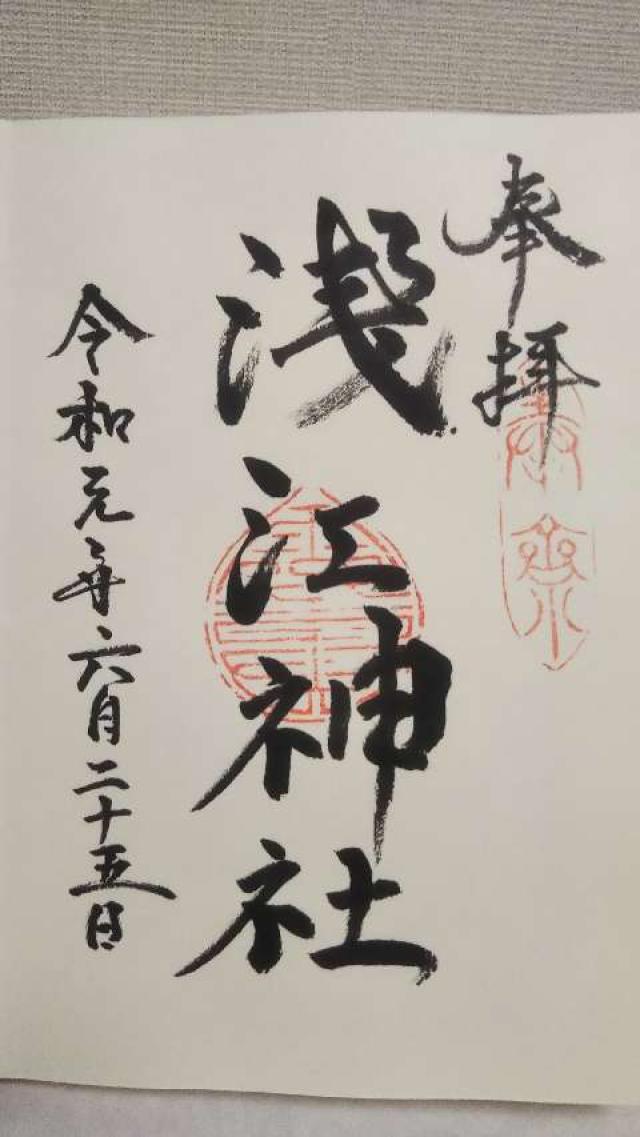 奉拝
淺江神社
令和元年六月二十五日